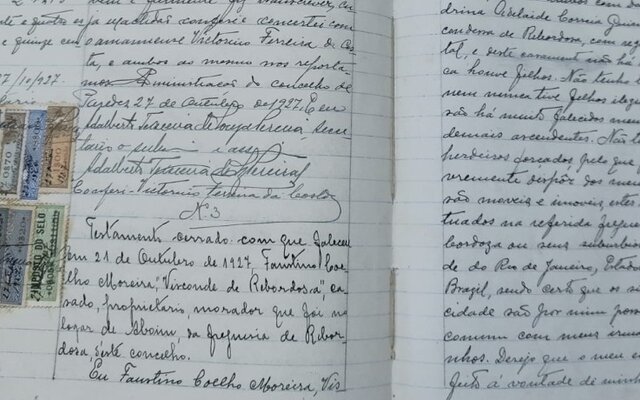 e justo es já rejeitadas conferi e concertei com
e quinze cen o amanuense Victorino Ferreira da Cos
ta, e ambos ao mesmo nos reporta-
mos. Administração do concelho de
7/10/927. Paredes 27 de Outubro de 1927. E eu
Adalberto Teixeira de Sousa Pereira, secre
tario o subscrevi e assigno
Adalberto Teixeira de S. Pereira
Conferi - Victorino Ferreira da Costa
N. 3
Testamento cerrado com que faleceu
em 21 de Outubro de 1927, Faustino Coe
lho Moreira, "Visconde de Rebordosa", ca
sado, proprietario, morador que foi no
logar de Aboim, da freguesia de Rebor
dosa, d'este concelho.
Eu Faustino Coelho Moreira, Vis-
IMPOSTO DO SELO
drina Adelaide Correia
condessa de Rebordosa, com
tal, e deste casamento não há
ca houve filhos. Não tenho
nem nunca tive filhos
são há muito falecidos meus
demais ascendentes. Não
herdeiros forçados pelo que
vremente dispôr dos meus
são moveis e imoveis, estes
tuados na referida freguesia
bordoza ou seus suburbios
de do Rio de Janeiro, Estados
Brazil, sendo certo que os
cidade são por mim pos
comum com meus irmã
nhos. Desejo que o meu en
feito á vontade de minha